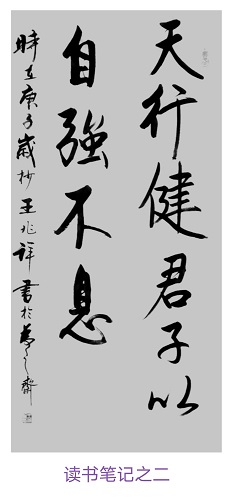 天行健君子以
自強不息
時在庚子歲杪王兆祥書於夢之齋
读书笔记之二